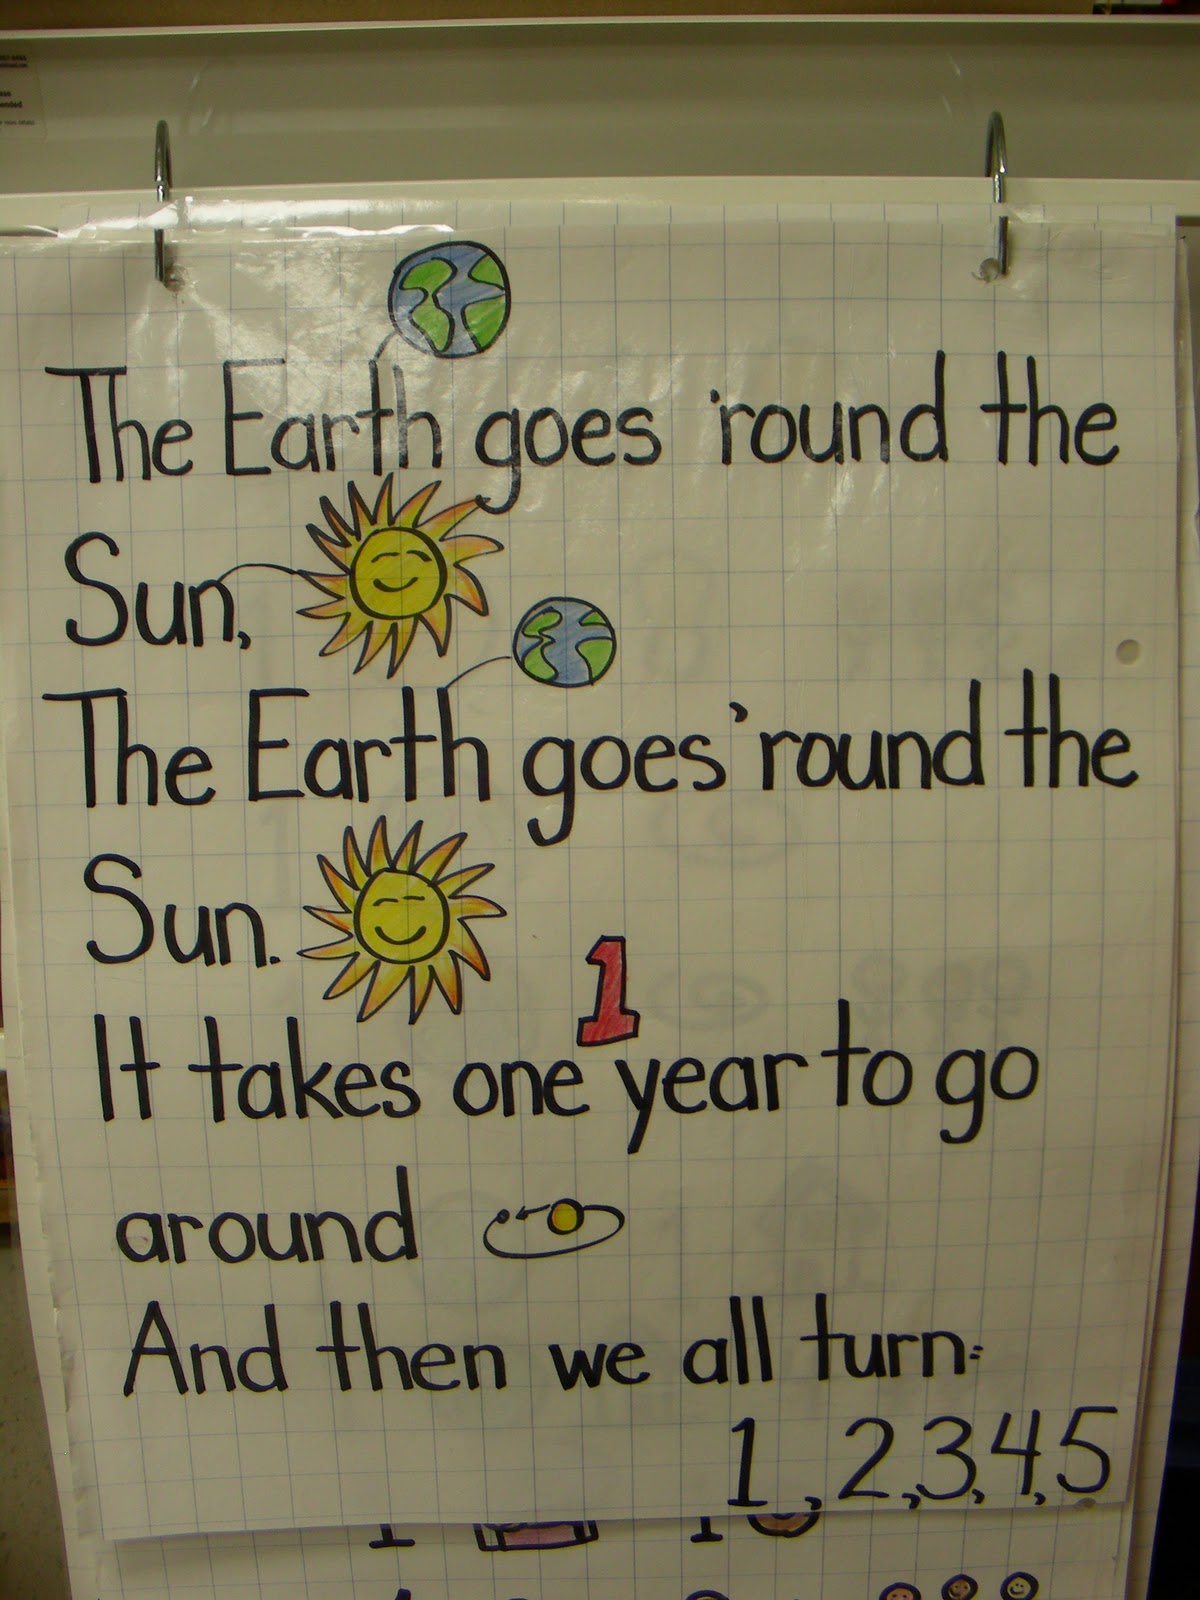 The Earth goes 'round the
Sun,
The Earth goes 'round the
Sun.
1
It takes one year to go
around
And then we all turn:
1, 2, 3, 4, 5